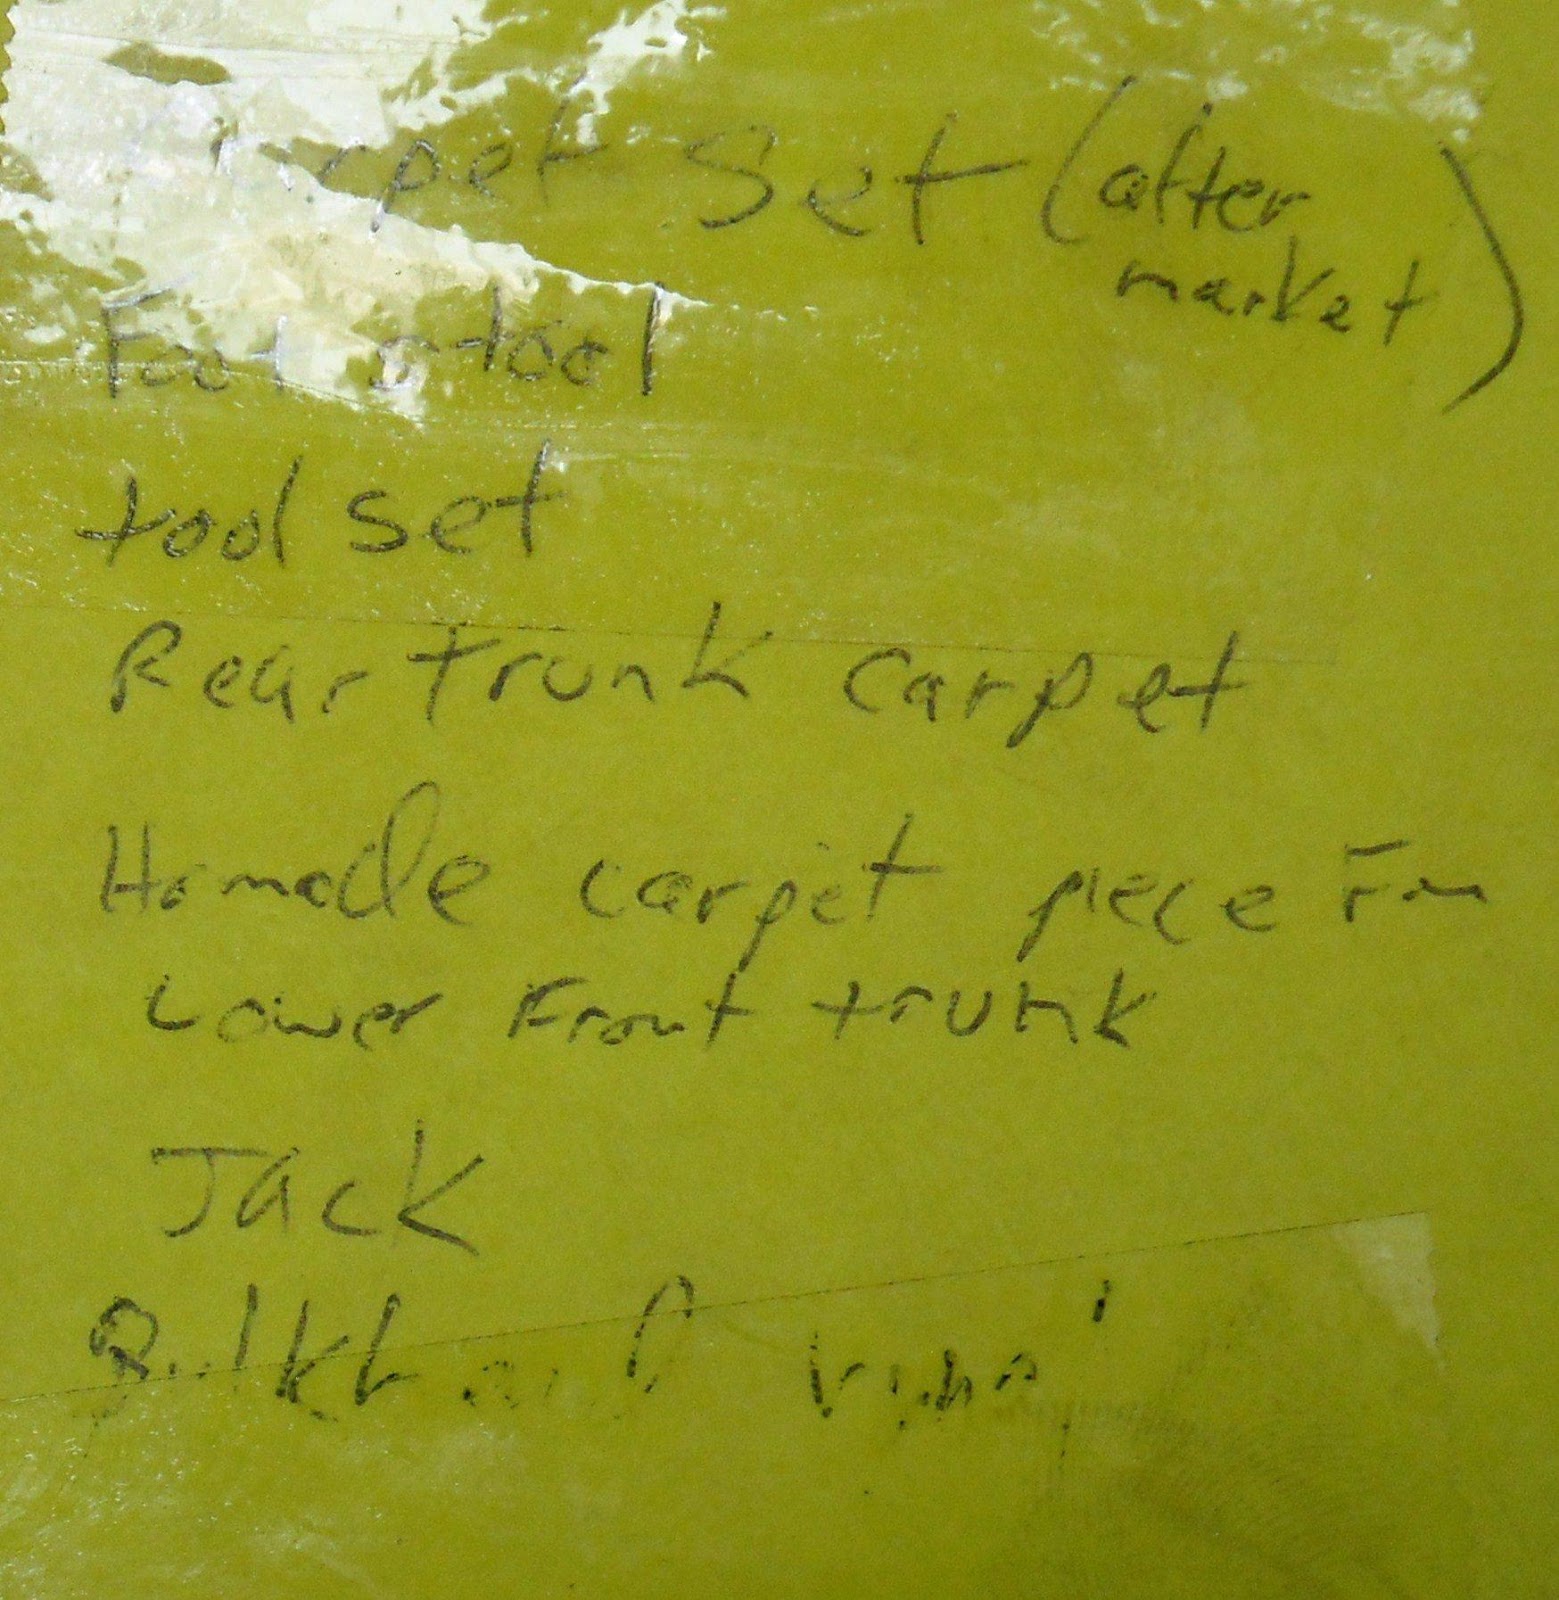 Carpet Set (after
market)
Foot stool
tool set
Rear trunk carpet
Homade carpet piece For
Lower Front trunk
Jack
Bulkhead